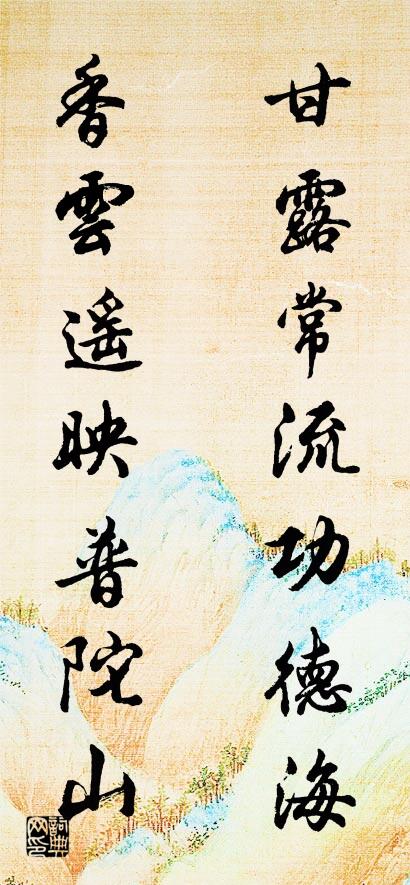 甘露常流功德海
香雲遥映普陀山
詞典网印